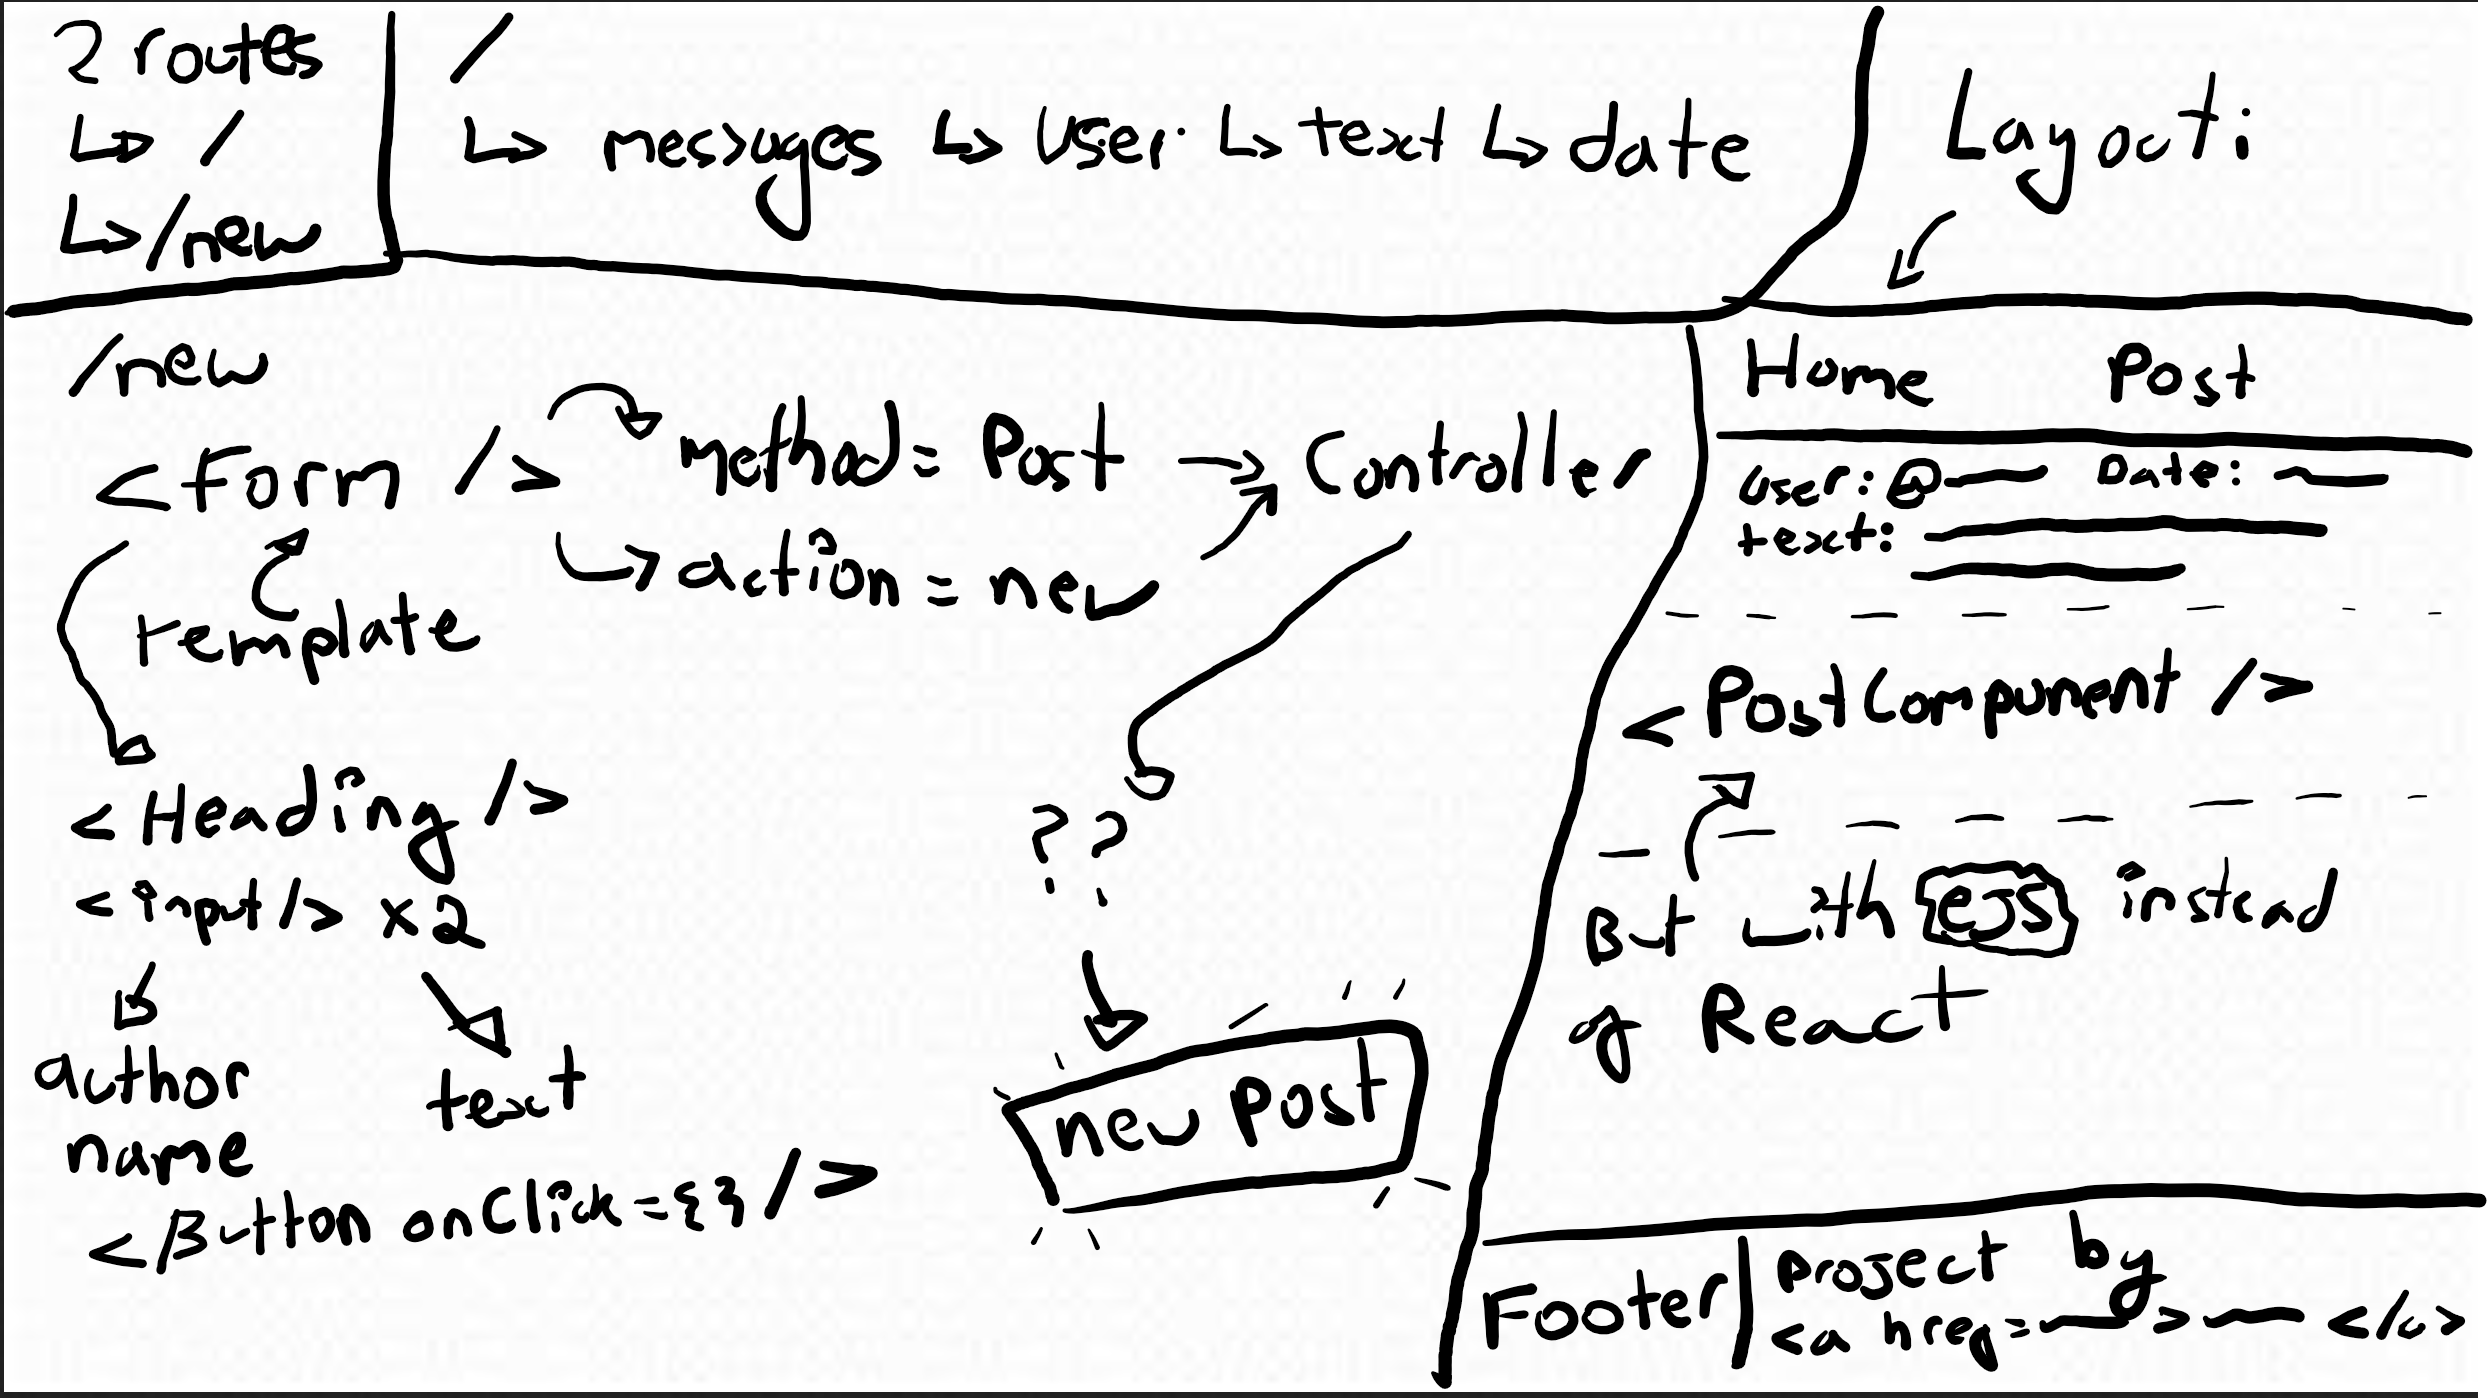 2 routes
↳ /
↳ /new
/
↳ messages ↳ User ↳ text ↳ date
Layout:
/new
<form />
method = Post → Controller
↳ action = new
template
<Heading />
<input/> x2
author
name
text
<Button onClick={} />
??
new post
Home Post
User: @ Date:
text:
<PostComponent />
But with ejs instead
of React
Footer | project by
<a href= > </a>